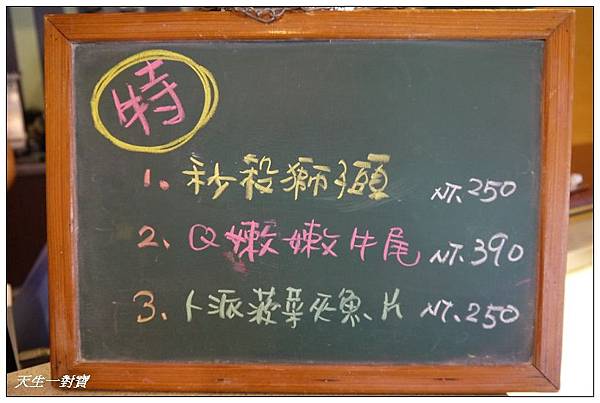 特
1. 秒殺獅子頭 NT.250
2、Q嫩嫩牛尾 NT.390
3、卜派菠菜夾魚片 NT.250
天生一對寶